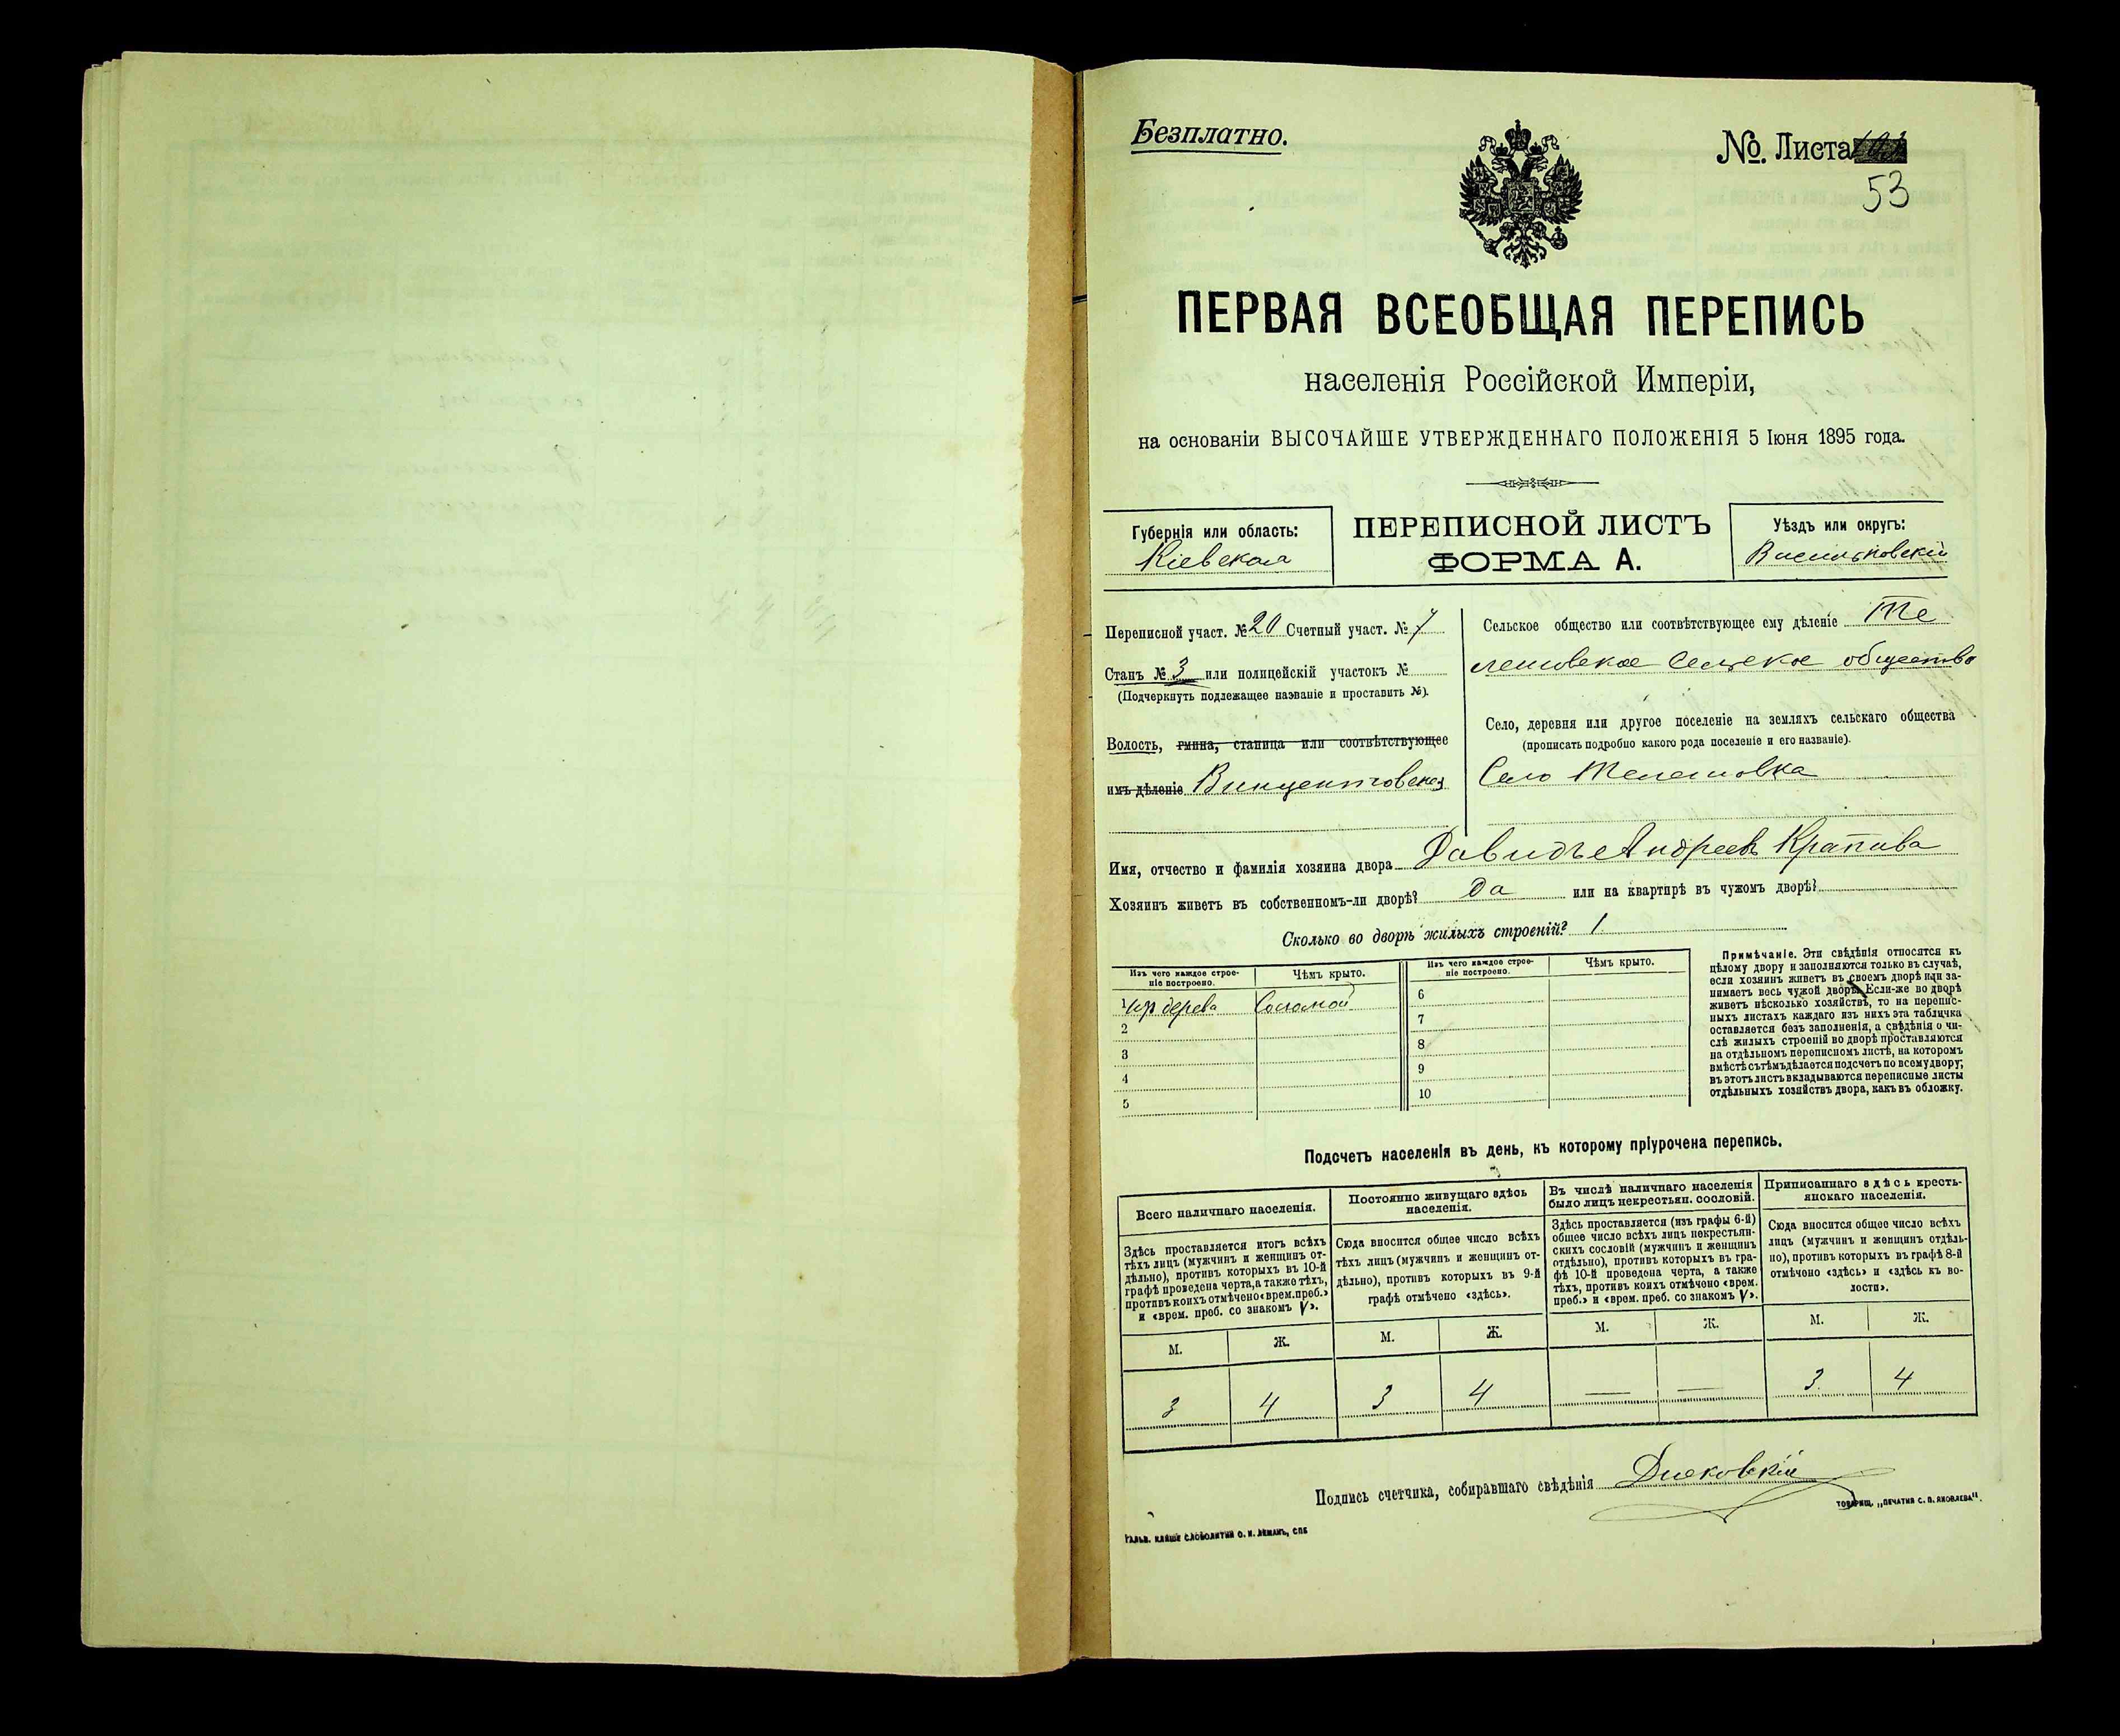 Безплатно.
№. Листа
53
ПЕРВАЯ ВСЕОБЩАЯ ПЕРЕПИСЬ
населенія Россійской Имперіи,
на основаніи ВЫСОЧАЙШЕ УТВЕРЖДЕННАГО ПОЛОЖЕНІЯ 5 Іюня 1895 года.
Губернія или область:
Кіевская
ПЕРЕПИСНОЙ ЛИСТЪ
ФОРМА А.
Уѣздъ или округъ:
Васильковскій
Переписной участ. № 20 Счетный участ. № 7
Станъ № 3 или полицейскій участокъ №
(Подчеркнуть подлежащее названіе и проставить №).
Волость, гмина, станица или соотвѣтствующее
имъ дѣленіе Винцентовская
Сельское общество или соотвѣтствующее ему дѣленіе Те
лешовское Сельское общество
Село, деревня или другое поселеніе на земляхъ сельскаго общества
(прописать подробно какого рода поселеніе и его названіе).
Село Телешовка
Имя, отчество и фамилія хозяина двора Давидъ Андреевъ Крапива
Хозяинъ живетъ въ собственномъ-ли дворѣ? Да или на квартирѣ въ чужомъ дворѣ?
Сколько во дворѣ жилыхъ строеній? 1.
Изъ чего каждое строе-
ніе построено.
Чѣмъ крыто.
Изъ чего каждое строе-
ніе построено.
Чѣмъ крыто.
1 изъ дерева Соломой
2
3
4
5
6
7
8
9
10
Примѣчаніе. Эти свѣдѣнія относятся къ
цѣлому двору и заполняются только въ случаѣ,
если хозяинъ живетъ въ своемъ дворѣ или за-
нимаетъ весь чужой дворъ. Если-же во дворѣ
живетъ нѣсколько хозяйствъ, то на перепис-
ныхъ листахъ каждаго изъ нихъ эта табличка
оставляется безъ заполненія, а свѣдѣнія о чи-
слѣ жилыхъ строеній во дворѣ проставляются
на отдѣльномъ переписномъ листѣ, на которомъ
вмѣстѣ съ тѣмъ дѣлается подсчетъ по всему двору;
въ этотъ листъ вкладываются переписные листы
отдѣльныхъ хозяйствъ двора, какъ въ обложку.
Подсчетъ населенія въ день, къ которому пріурочена перепись.
Всего наличнаго населенія.
Постоянно живущаго здѣсь
населенія.
Въ числѣ наличнаго населенія
было лицъ некрестьян. сословій.
Приписаннаго здѣсь кресть-
янскаго населенія.
Здѣсь проставляется итогъ всѣхъ
тѣхъ лицъ (мужчинъ и женщинъ от-
дѣльно), противъ которыхъ въ 10-й
графѣ проведена черта, а также тѣхъ,
противъ коихъ отмѣчено «врем. преб.»
и «врем. преб. со знакомъ V».
Сюда вносится общее число всѣхъ
тѣхъ лицъ (мужчинъ и женщинъ от-
дѣльно), противъ которыхъ въ 9-й
графѣ отмѣчено «здѣсь».
Здѣсь проставляется (изъ графы 6-й)
общее число всѣхъ лицъ некрестьян-
скихъ сословій (мужчинъ и женщинъ
отдѣльно), противъ которыхъ въ гра-
фѣ 10-й проведена черта, а также
тѣхъ, противъ коихъ отмѣчено «врем.
преб.» и «врем. преб. со знакомъ V».
Сюда вносится общее число всѣхъ
лицъ (мужчинъ и женщинъ отдѣль-
но), противъ которыхъ въ графѣ 8-й
отмѣчено «здѣсь» и «здѣсь къ во-
лости».
М. Ж. М. Ж. М. Ж. М. Ж.
3 4 3 4 — — 3 4
Подпись счетчика, собиравшаго свѣдѣнія
ТОВАРИЩ. „ПЕЧАТНЯ С. П. ЯКОВЛЕВА“.
ГАЛЬВ. КЛИШЕ СЛОВОЛИТНИ О. И. ЛЕМАНЪ, СПБ